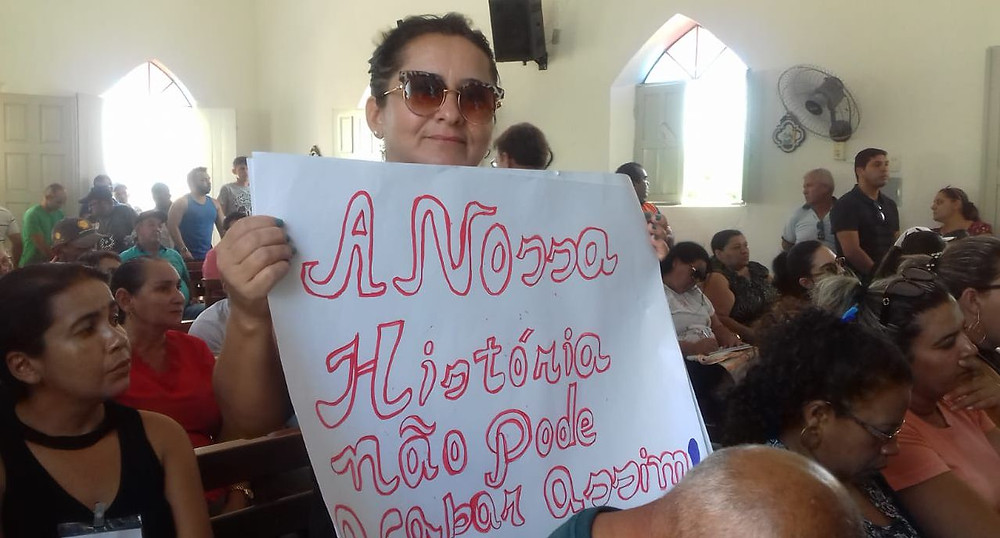 A Nossa
História
não Pode
acabar assim!